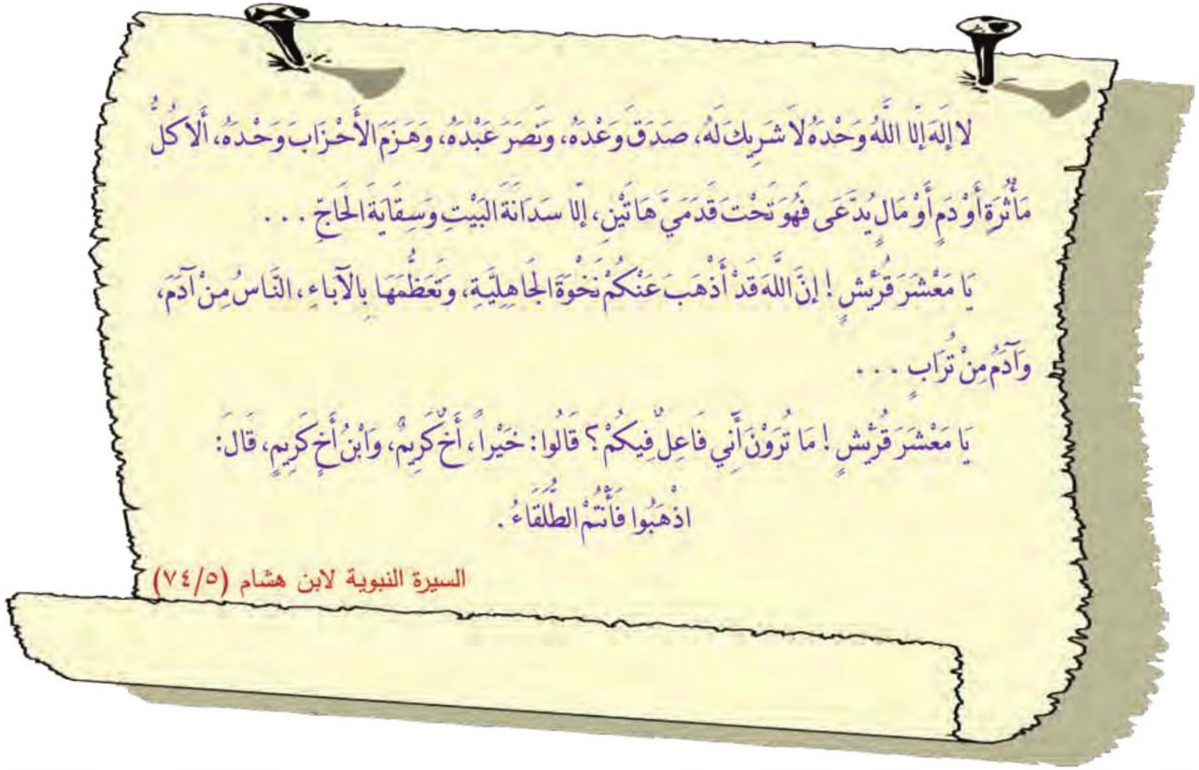 لا إِلَهَ إِلَّا اللَّهُ وَحْدَهُ لَا شَرِيكَ لَهُ، صَدَقَ وَعْدَهُ، وَنَصَرَ عَبْدَهُ، وَهَزَمَ الأَحْزَابَ وَحْدَهُ، أَلَا كُلُّ
مَأْثُرَةٍ أَوْ دَمٍ أَوْ مَالٍ يُدَّعَى فَهُوَ تَحْتَ قَدَمَيَّ هَاتَيْنِ، إِلَّا سَدَانَةَ البَيْتِ وَسِقَايَةَ الحَاجِّ ...
يَا مَعْشَرَ قُرَيْشٍ! إِنَّ اللَّهَ قَدْ أَذْهَبَ عَنْكُمْ نَخْوَةَ الجَاهِلِيَّةِ، وَتَعَظُّمَهَا بِالآبَاءِ، النَّاسُ مِنْ آدَمَ،
وَآدَمُ مِنْ تُرَابٍ ...
يَا مَعْشَرَ قُرَيْشٍ! مَا تُرَوْنَ أَنِّي فَاعِلٌ فِيكُمْ؟ قَالُوا: خَيْراً، أَخٌ كَرِيمٌ، وَابْنُ أَخٍ كَرِيمٍ، قَالَ:
اذْهَبُوا فَأَنْتُمْ الطُّلَقَاءُ.
السيرة النبوية لابن هشام (٧٤/٥)